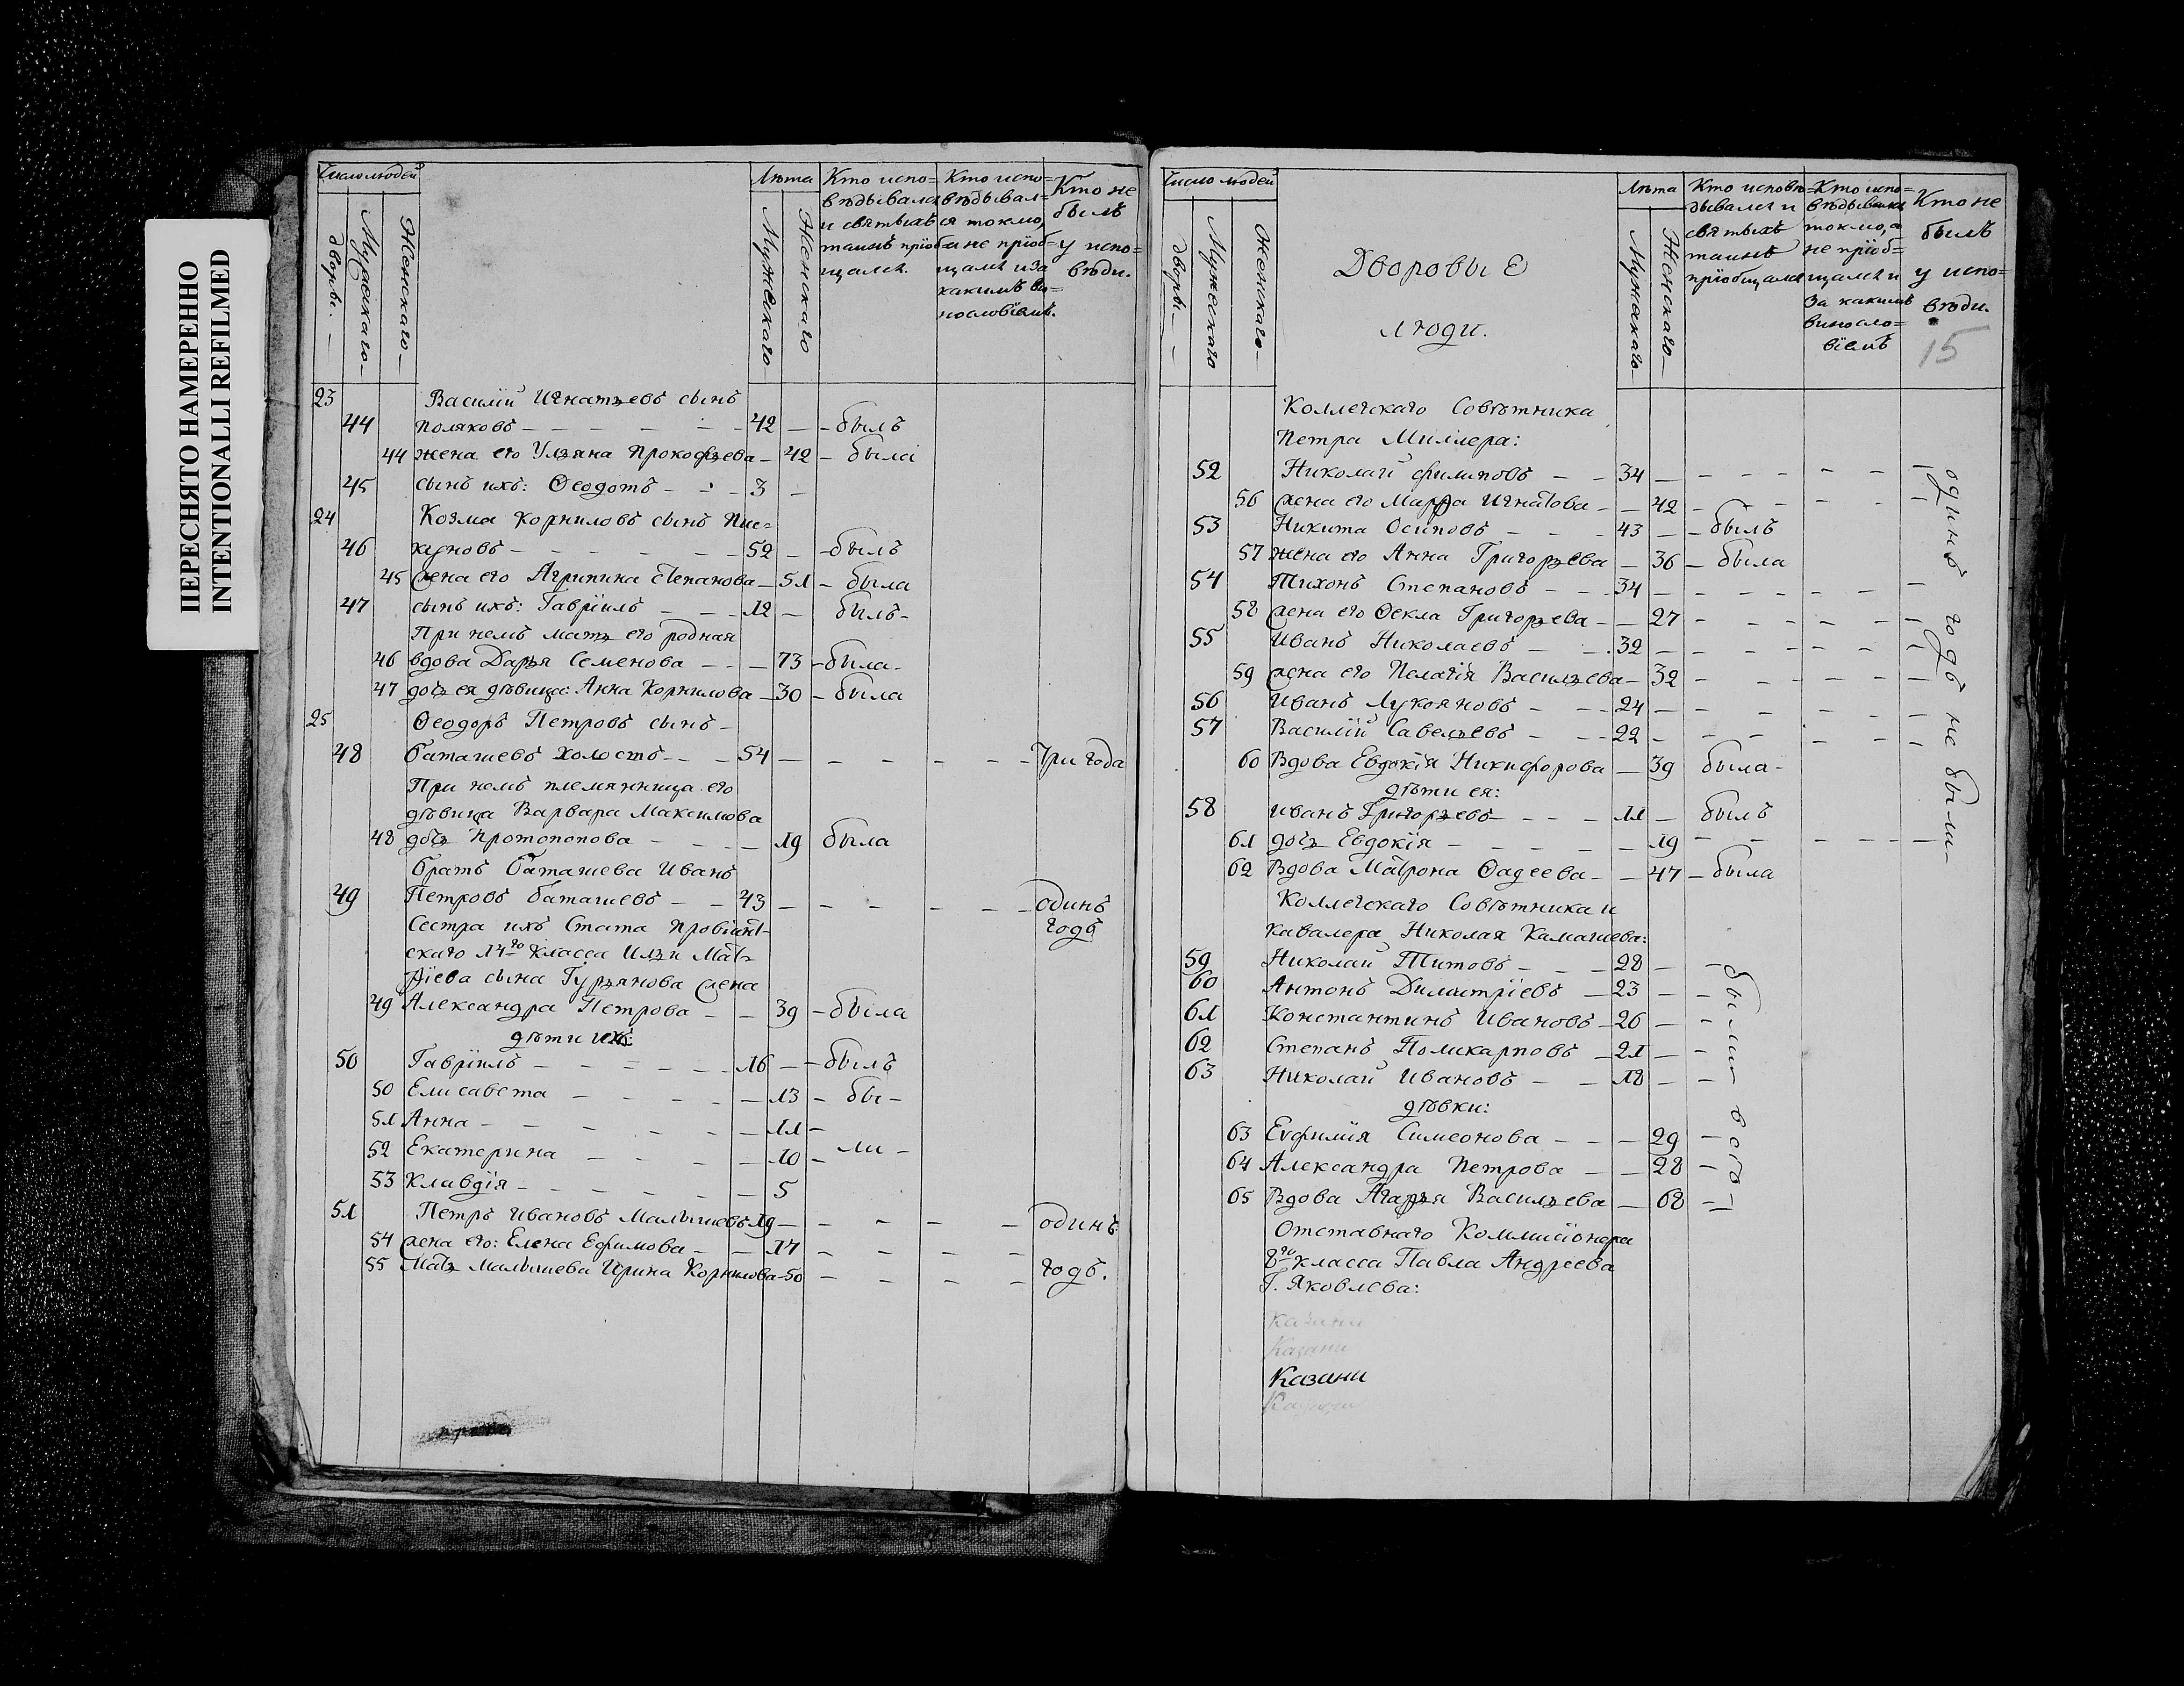 ПЕРЕСНЯТО НАМЕРЕННО
INTENTIONALLI REFILMED
Число людей
дворы.
Мужескаго
Женскаго
Лѣта
Мужескаго
Женскаго
Кто испо=
вѣдывался
и святыхъ
таинъ пріоб
щался.
Кто испо=
вѣдывал=
ся токмо,
а не пріоб=
щался и за
какимъ ви=
нословіемъ.
Кто не
былъ
у испо=
вѣди.
23 Василій Игнатьевъ сынъ
44 Поляковъ 42 былъ
44 жена его Ульяна Прокофьева 42 была
45 сынъ ихъ: Ѳеодотъ 3
24 Козма Корниловъ сынъ
46 52 былъ
45 жена его Агрипина Степанова 51 была
47 сынъ ихъ: Гавріилъ 12 былъ
При немъ мать его родная
46 вдова Дарья Семенова 73 была
47 дочь ея дѣвица: Анна Корнилова 30 была
25 Ѳеодоръ Петровъ сынъ
48 Баташевъ холостъ 54 Три года
При немъ племянница его
дѣвица Варвара Максимова
48 дочь Протопопова 19 была
Братъ Баташева Иванъ
49 Петровъ Баташевъ 43 одинъ
Сестра ихъ Стата Провіянт- годъ
скаго 14го класса Ильи Мат-
фіева сына Гурьянова жена
49 Александра Петрова 39 была
дѣти ихъ:
50 Гавріилъ 16 былъ
50 Елисавета 13 бы-
51 Анна 11
52 Екатерина 10 ли
53 Клавдія 5
51 Петръ Ивановъ Малышевъ 19 одинъ
54 жена его: Елена Ефимова 17
55 Мать Малышева Ирина Корнилова 50 годъ.
Число людей
дворы
Мужескаго
Женскаго
Дворовые
люди.
Лѣта
Мужескаго
Женскаго
Кто исповѣ=
дывался и
святыхъ
таинъ
пріобщался
Кто испо=
вѣдывался
токмо, а
не пріоб=
щался и
за какимъ
виносло=
віемъ
Кто не
былъ
у испо=
вѣди.
15
Коллежскаго Совѣтника
Петра Миллера:
52 Николай Филиповъ 34
56 жена его Марфа Игнатова 42
53 Никита Осиповъ 43 былъ
57 жена его Анна Григорьева 36 была
54 Тихонъ Степановъ 34
58 жена его Ѳекла Григорьева 27
55 Иванъ Николаевъ 32
59 жена его Пелагія Васильева 32
56 Иванъ Лукояновъ 24
57 Василій Савельевъ 22
60 Вдова Евдокія Никифорова 39 была
дѣти ея:
58 Иванъ Григорьевъ 11 былъ
61 дочь Евдокія 19
одинъ годъ не были
62 Вдова Матрона Ѳадеева 47 была
Коллежскаго Совѣтника и
Кавалера Николая Камашева:
59 Николай Титовъ 28
60 Антонъ Димитріевъ 23
61 Константинъ Ивановъ 26
62 Степанъ Поликарповъ 21
63 Николай Ивановъ 18
дѣвки:
63 Евфимія Симеонова 29
64 Александра Петрова 28
65 Вдова Агафья Васильева 68
были всѣ
Отставнаго Коммисіонера
8го класса Павла Андреева
Г. Яковлева:
Казани
Казани
Казани